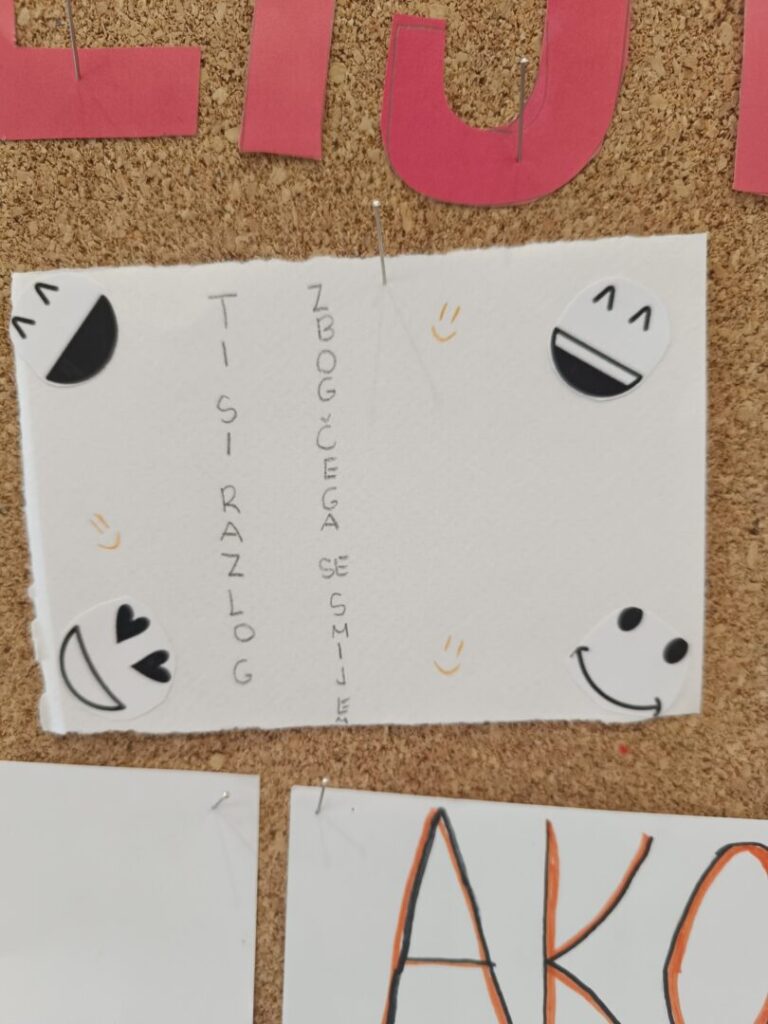 TI SI RAZLOG
ZBOG ČEGA SE SMIJEM
AKO